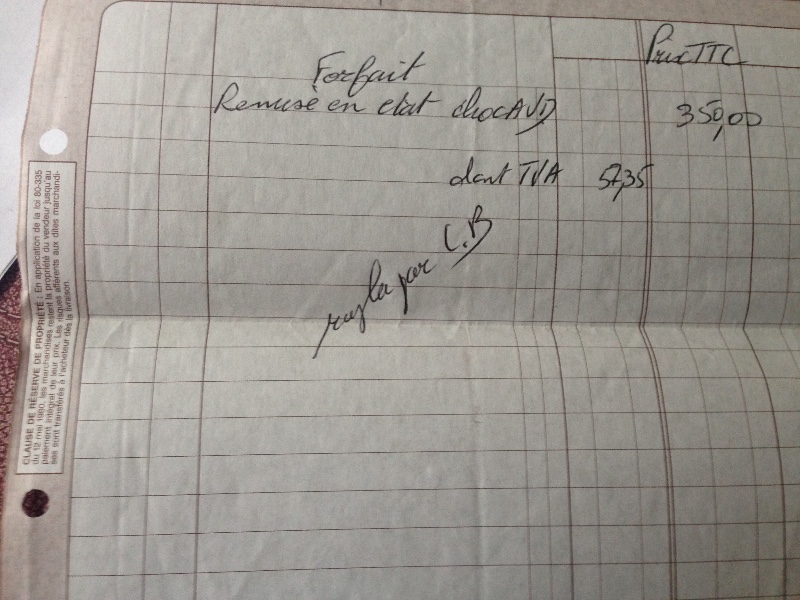 Prix TTC
Forfait
Remise en etat choc AVD 350,00
dont TVA 57,35
regle par C.B
CLAUSE DE RÉSERVE DE PROPRIÉTÉ : En application de la loi 80-335
du 12 mai 1980, les marchandises restent la propriété du vendeur jusqu'au
paiement intégral de leur prix. Les risques afférents aux dites marchandi-
ses sont transférés à l'acheteur dès la livraison.